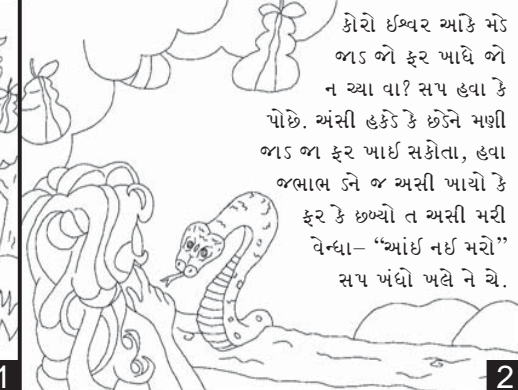 કોરો ઈશ્વર આંકે મડે
જાડ જો ફર ખાધે જો
ન ચ્યા વા? સપ હવા કે
પોછે. અંસી હકડે કે છડેને મણી
જાડ જા ફર ખાઈ સકોતા, હવા
જભાભ ડને જ અસી ખાયો કે
ફર કે છબ્યો ત અસી મરી
વેન્ધા– “આંઈ નઈ મરો”
સપ ખંધો ખલે ને ચે.
1
2